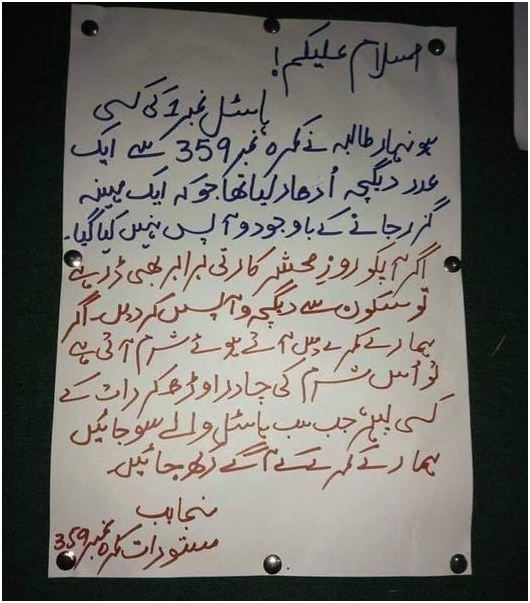 اسلام علیکم!
ہاسٹل نمبر 1 کی کسی
ہونہار طالبہ نے کمرہ نمبر 359 سے ایک
عدد دیگچہ اُدھار لیا تھا جو کہ ایک مہینہ
گزر جانے کے باوجود وآپس نہیں کیا گیا۔
اگر آپکو روزِ محشر کا رتی برابر بھی ڈر ہے
تو سکون سے دیگچہ وآپس کر دیں۔ اگر
ہمارے کمرے میں آتے ہوئے شرم آتی ہے
تو اُس شرم کی چادر اوڑھ کر رات کے
کسی پہر، جب سب ہاسٹل والے سو جائیں
ہمارے کمرے کے آگے رکھ جائیں۔
منجانب
مستورات کمرہ نمبر 359